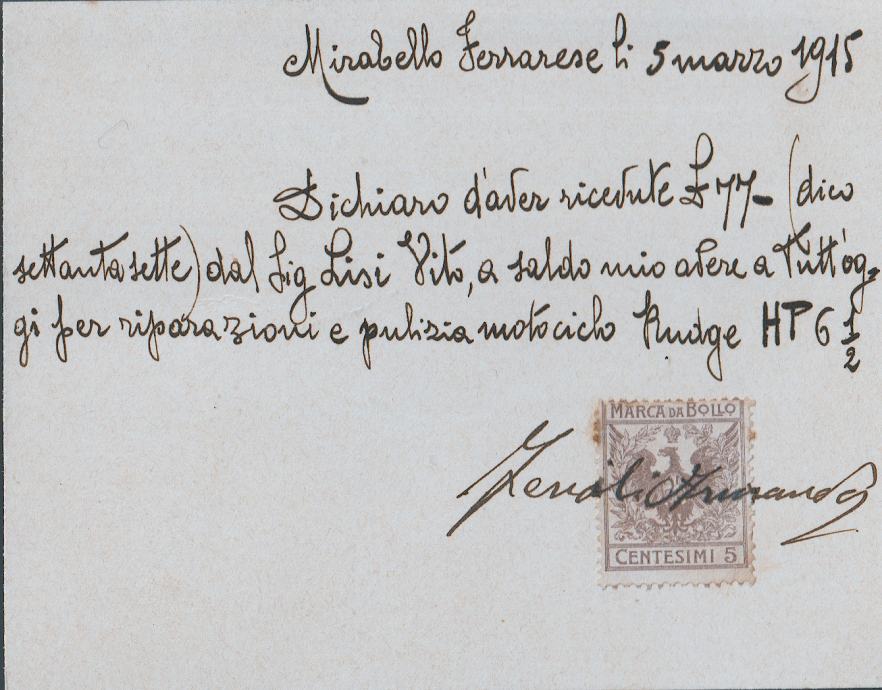 Mirabello Ferrarese li 5 marzo 1915
Dichiaro d'aver ricevute £ 77- (dico
settanta sette) dal Sig Lisi Vito, a saldo mio avere a tutt'og=
gi per riparazioni e pulizia motociclo Rudge HP 6 1/2
MARCA DA BOLLO
Armando
CENTESIMI 5